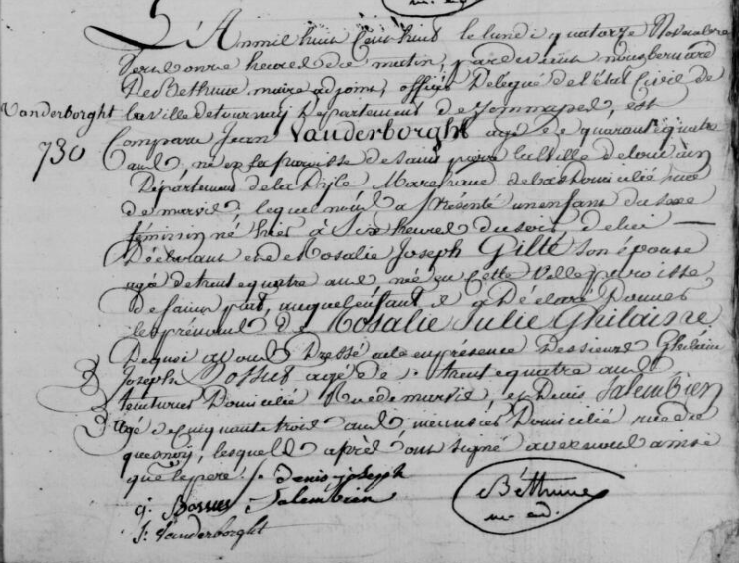 L'An mil huit Cent huit le lundi quatorze Novembre
vers onze heures du matin, pardevant nous bernard
De Bethune maire adjoint, officier Délégué de l'état Civil de
la ville de tournay Département de Jemmapes, est
Vanderborght
730
Comparu Jean Vanderborght agé de quarante quatre
ans, né en la paroisse de Saint ville de louvain
Département de la Dyle Marchand de bas Domicilié rue
de marvis, lequel nous a présenté un enfant du sexe
féminin né hier à six heures du soir de lui
Déclarant et de Rosalie Joseph Gilté son épouse
agé de trente quatre ans, née en Cette ville paroisse
de saint piat, auquel enfant il a Déclaré Donner
les prénoms De Rosalie Julie Ghilaine
De quoi avons Dressé acte en présence Des sieurs Ghilain
Joseph Bossus agé de trente quatre ans
teinturier Domicilié Rue de marvis, et Denis Salembien
agé de Cinquante trois ans meunier Domicilié rue du
quesnoy, lesquels après ont signé avec nous ainsi
que le père
denis joseph
g. Bossus Salembien
J. Vanderborght
Béthune
m. ad.